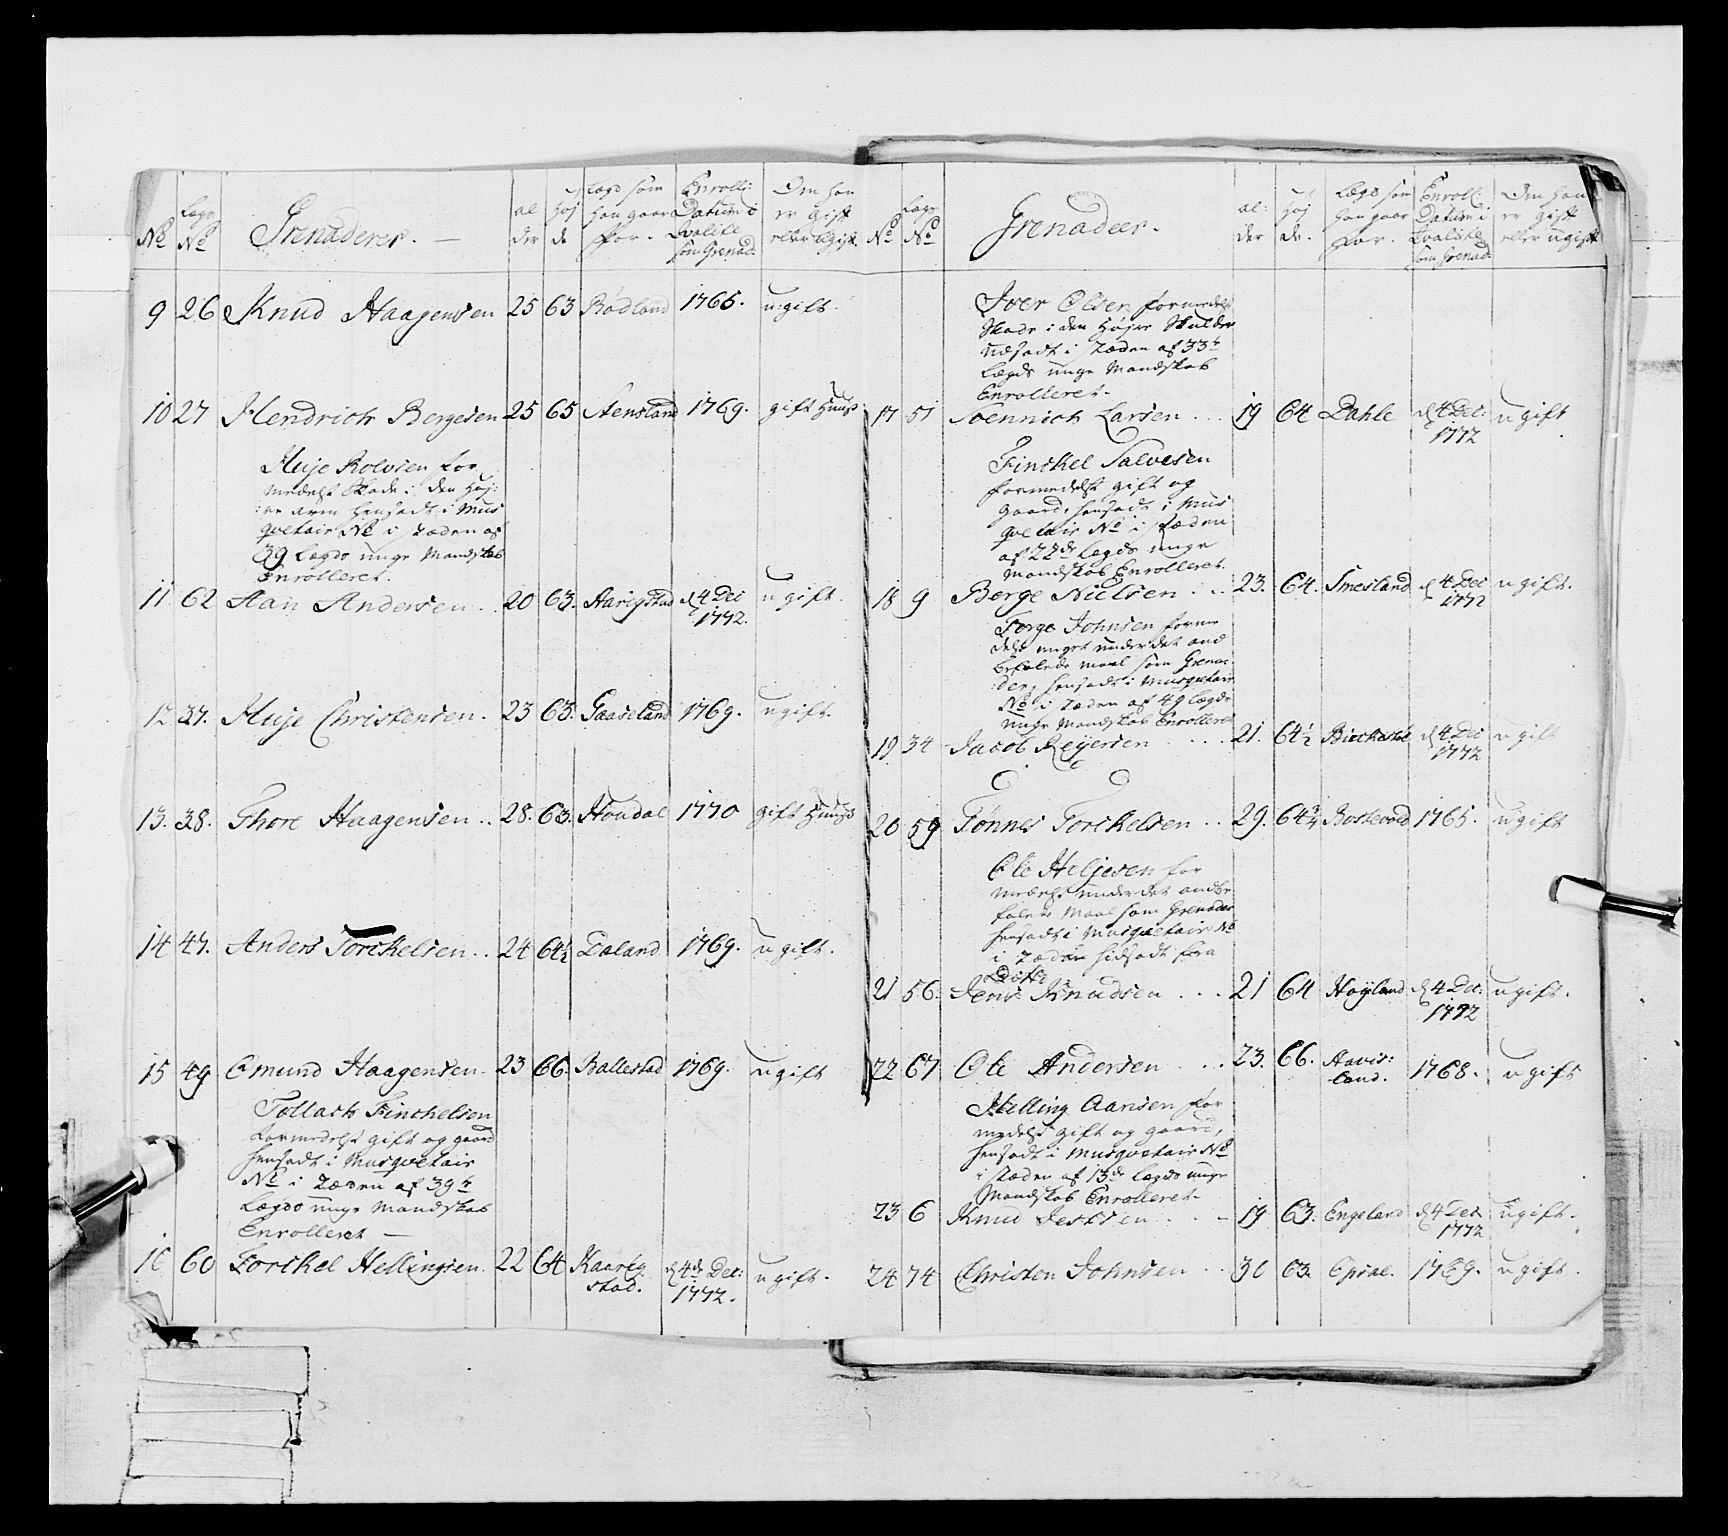 No
Lægs No
Grenaderer. —
al der
Høj de
Lægd som han gaar for.
Enrolle: Datum i Qvalite som Grenad:
Om han er gift eller ugift.
9 26 Knud Haagensen 25 63 Rödland 1765. ugift.
10 27 Hendrich Bergesen 25 65 Stensland 1769. gift Huus
Huje Rolvsen for
medelst Skade i den Høj:
:re arm hensadt i Mus
qvetair No i Stæden af
39 Lægds unge Mandskab
Enrolleret.
11. 62 Aan Andersen .. 20 63. Harigstad d 4 Dec
1772. ugift.
12 37. Huje Christensen. 23 63. Gaaseland 1769. ugift.
13. 38. Thore Haagensen .. 28. 63. Houdal 1770 gift Huus
14 47. Anders Torckelsen .. 24 64½ Daland 1769. ugift.
15 49 Omund Haagensen. 23 66. Ballestad 1769. ugift
Tollach Finckelsen
formedelst gift og gaard
hensadt i Musqvetair
No i Stæden af 39te
Lægds unge Mandskab
Enrolleret —
16 60 Torckel Hellingsen. 22 64 Kaarig
stad. d 4de Dec:
1772. ugift.
No
Lægs No
Grenadeer.
al: der
Høj de.
Lægd som han gaar for.
Enroll: Datum i Qvalite som Grenad:
Om han er gift eller ugift
Iver Olsen, formedelst
Skade i den Højre Skulder
udsadt i Stæden af 33te
Lægds unge Mandskab
Enrolleret.
17 51 Tennich Larsen ... 19 64 Dahle d 4 Dec:
1772 ugift
Finckel Salvesen
formedelst gift og
gaard, hensadt i Mus
qvetair No i Stæden
af 22de Lægds unge
Mandskab Enrolleret
18 9 Berge Nielsen ... 23. 64. Smesland d 4 Dec
1772 ugift.
Torge Johnsen forme
delst meget under det and
befalede maal som Grena:
:der, hensadt i Musqvetair
No i Stæden af 49 Lægds
unge Mandskab Enrolleret
19 34 Jacob Reyersen .... 21. 64½ Birkestøl d 4 Dec
1772 ugift
20 59 Tönnes Torckelsen .. 29. 64¾ Rostevold 1765. ugift
Ole Heljesen for
medelst under det andbe
falede Maal som Grenader
hensadt i Musqvetair No
i Stæden hidsadt fra
Ditto
21 56. Jens Knudsen ... 21 64 Høyland d 4 Dec:
1772 ugift.
22 67 Ole Andersen ... 23. 66. Aavis:
land. 1768. ugift
Helling Aansen for
medelst gift og gaard,
hensadt i Musqvetair No
i Stæden af 13de Lægds unge
Mandskab Enrolleret.
23 6 Knud Jessen ... 19 63. Engeland d 4 Dec
1772 ugift.
24 74 Christen Johnsen .. 30 63. Opsal. 1769. ugift.